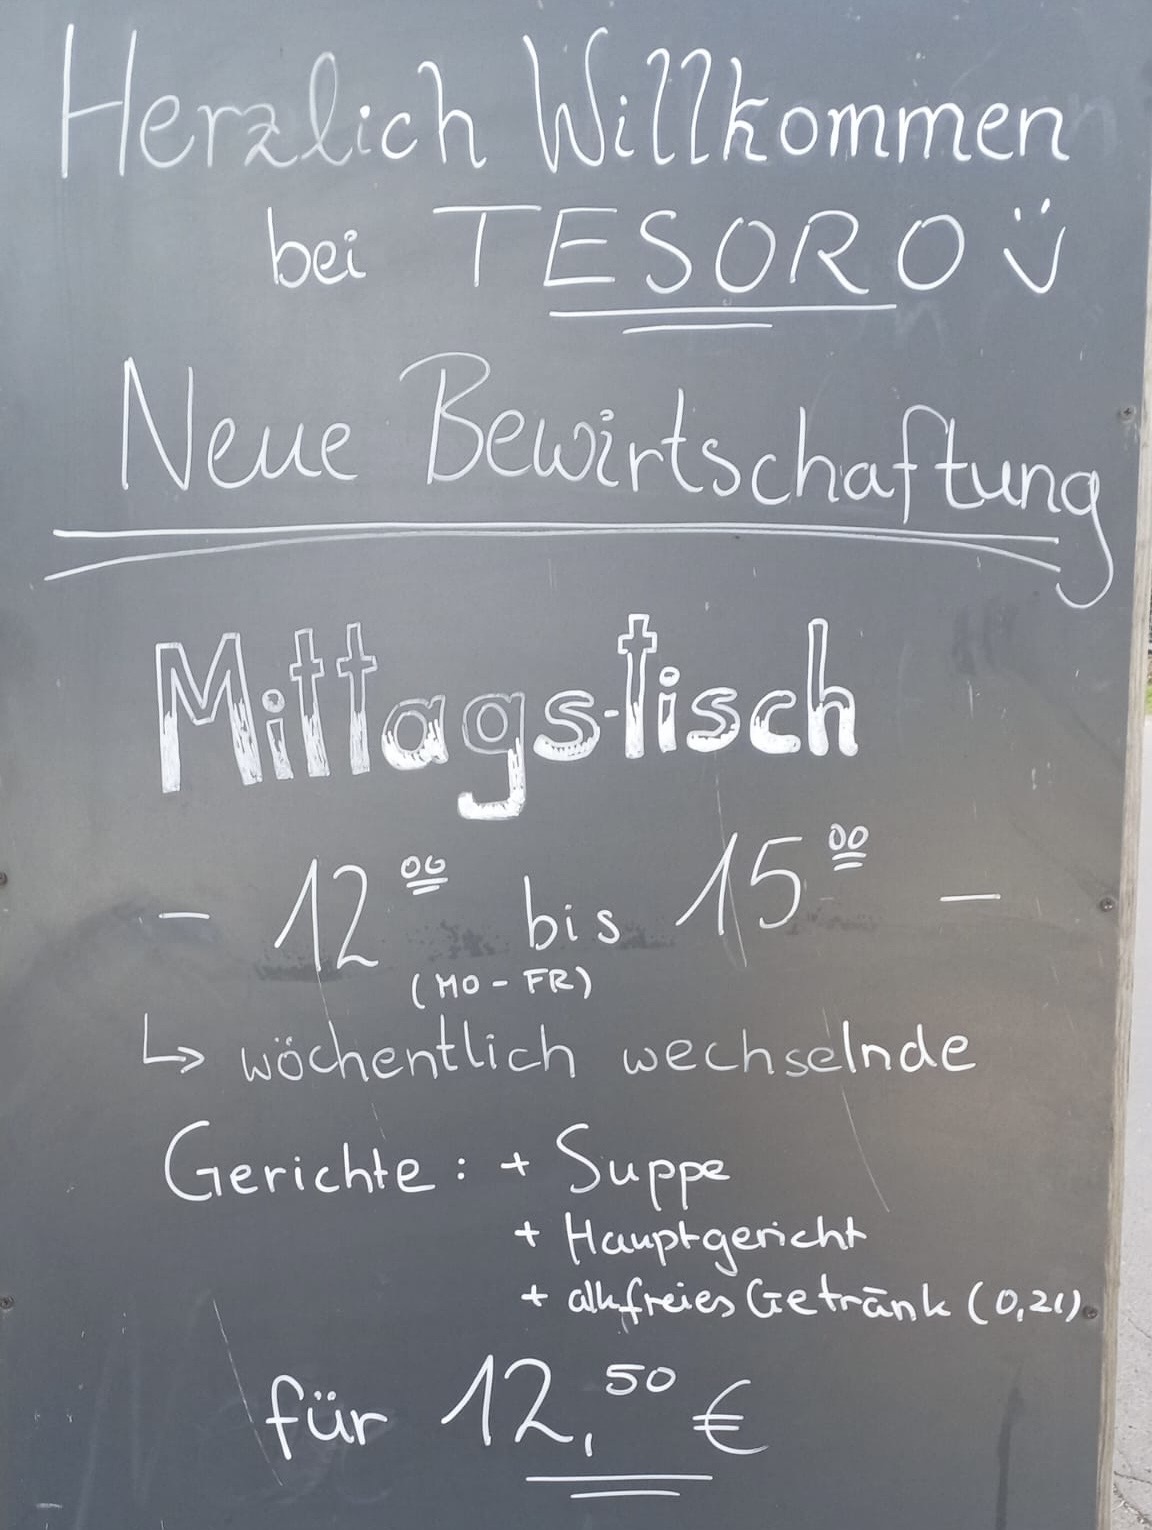 Herzlich Willkommen
bei TESORO
Neue Bewirtschaftung
Mittags-tisch
- 12 00 bis 15 00 -
(MO - FR)
↳ wöchentlich wechselnde
Gerichte: + Suppe
+ Hauptgericht
+ alkfreies Getränk (0,2l)
für 12,50 €